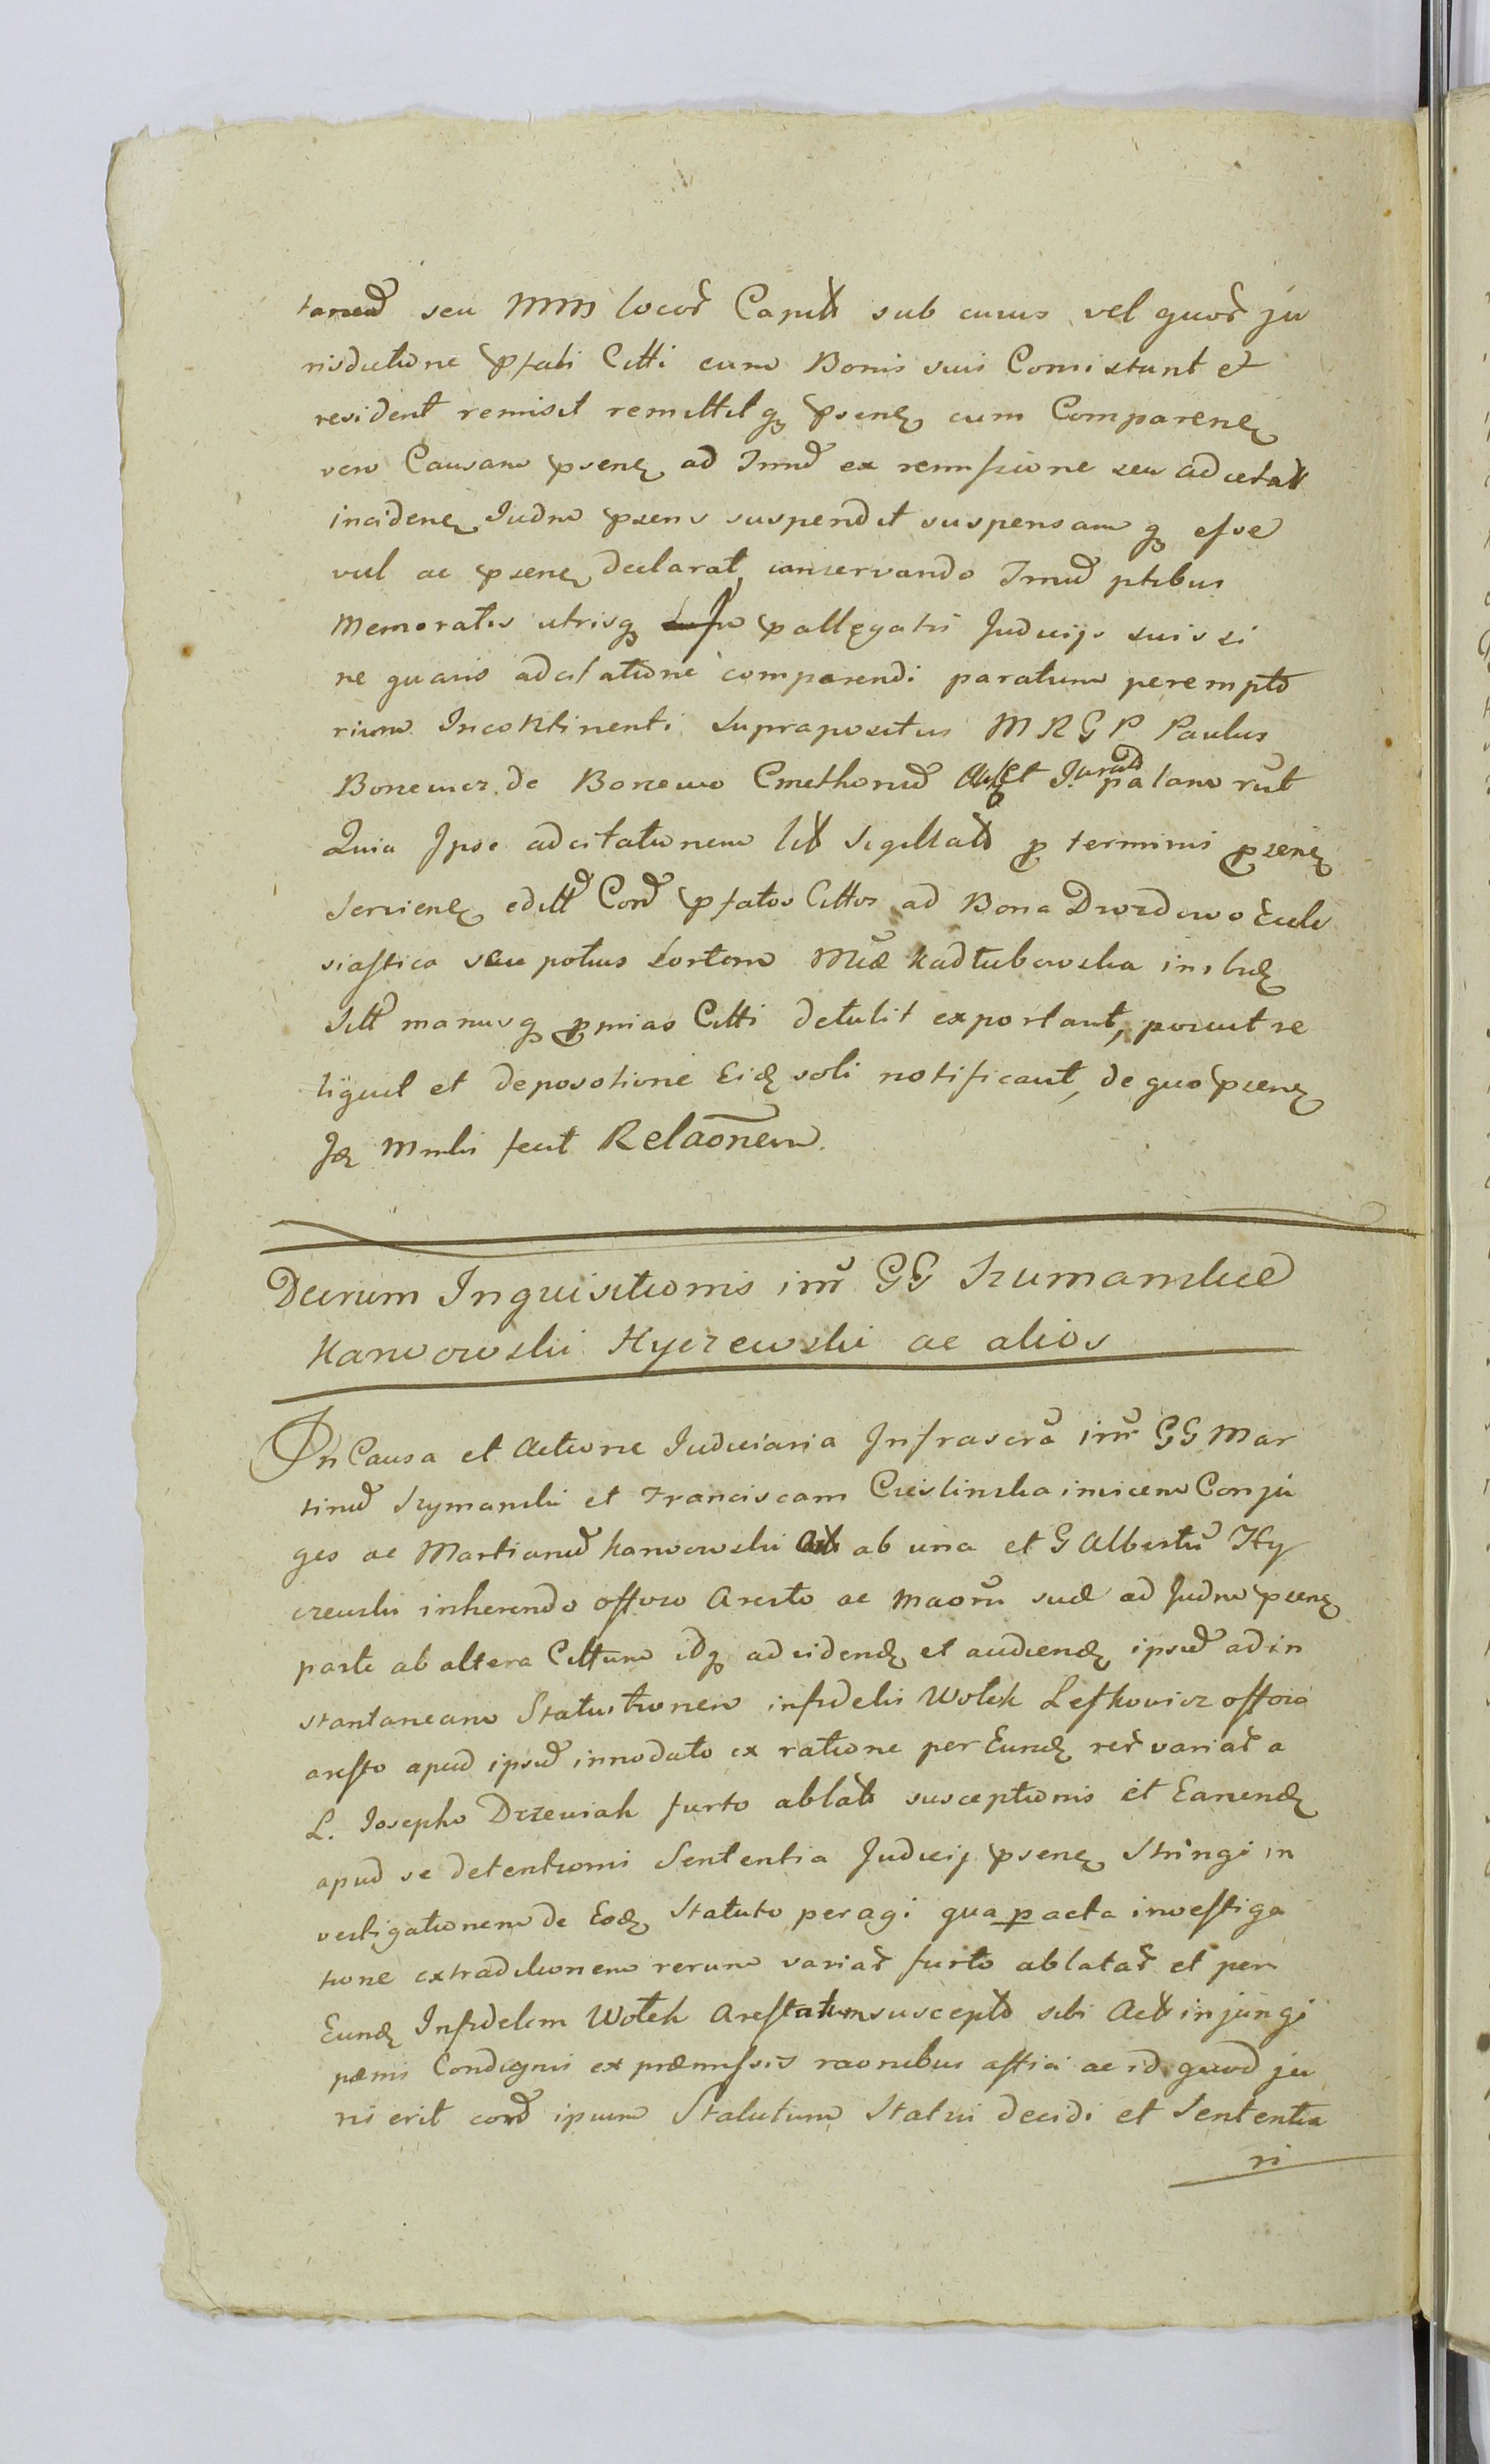 taneũ seu MM locor̃ Capitt sub cuius vel quor̃ ju
risdictione pfati Citti cum Bonis suis Consistunt et
resident remisit remittitq psene cum Comparene
vero Causam psene ad Imũ ex remissione seu adcitatt
incidene Iudm psens suspendit suspensamq esse
vult ac psene declarat, conservando Imũ ptibus
Memoratis utrisq pallegatis Judicijs suis si
ne quavis adcitatione comparendi paratum perempto
rium Incontinenti Suprapositus M R G P Paulus
Bonewicz de Bonewo Cmethonũ et Jurat palam rũt
Quia Ipse adcitationem litt sigillatt p terminis psene
Serviene editt Corũ pfatos Cittos ad Bona Drozdowo Eccle
siastica seu potius Sortem Mũe Kadłubowska in ibidq
Sitt manusq pmias Citti detulit exportavt, posuit re
liquit et depositione Eidq soli notificavt, de quo psene
Jz Mnlis fecit Relaõnem.
Decrum Inquisitionis inr̃ GG Szumanskie
Karwowski Hyczewski ac alios
In Causa et Actione Judiciaria Infrascra inr̃ GG Mar
tinũ Szymanski et Franciscam Czeslinska invicem Conju
ges ac Martianũ Karwowski Actt ab una et G Albertũ Hy
czewski inherendo offoso Aresto ac Maorũ sude ad Judm psene
parte ab altera Cittum idq ad videndq et audiendq ipsũ ad in
stantaneam Statuitionem infidelis Wołek Leskowicz offoso
aresto apud ipsũ innodato ex ratione per Eundq rer̃ variar̃ a
L. Josepho Drzewiak furto ablatt susceptionis et Earundq
apud se detentionis Sententia Judicij psene Stringi in
vestigationem de Eodq Statuto peragi qua pacta investiga
tione extraditionem rerum variar̃ furto ablatar̃ et per
Eundq Infidelem Wołek Arestatum susceptt sibi Actt injungi
pænis Condignis ex præmissis raonibus affici ac id quod ju
ris erit corũ ipsum Statutum Statui decidi et Sententia
ri